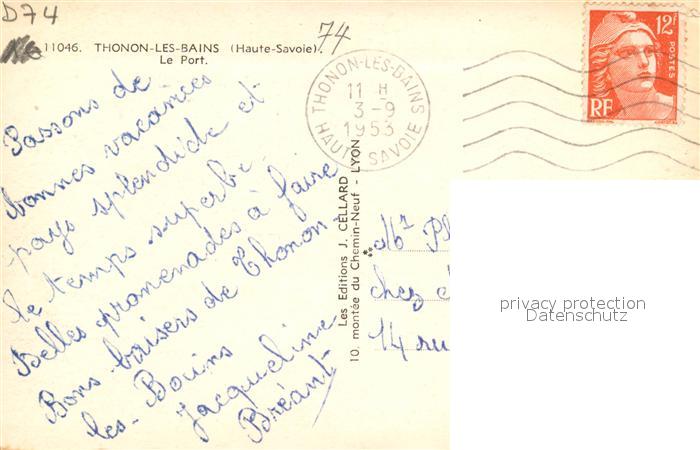 D74
74
11046. THONON-LES-BAINS (Haute-Savoie).
Le Port.
THONON-LES-BAINS
11 H
3-9
1953
HAUTE SAVOIE
12F
POSTES
RF
Passons de
bonnes vacances
pays splendide et
le temps superbe.
Belles promenades à faire
Bons baisers de Thonon-
les-Bains
Jacqueline
Bréant
Les Editions J. CELLARD
10, montée du Chemin-Neuf - LYON
Mr Pl
chez
14 ru
privacy protection
Datenschutz